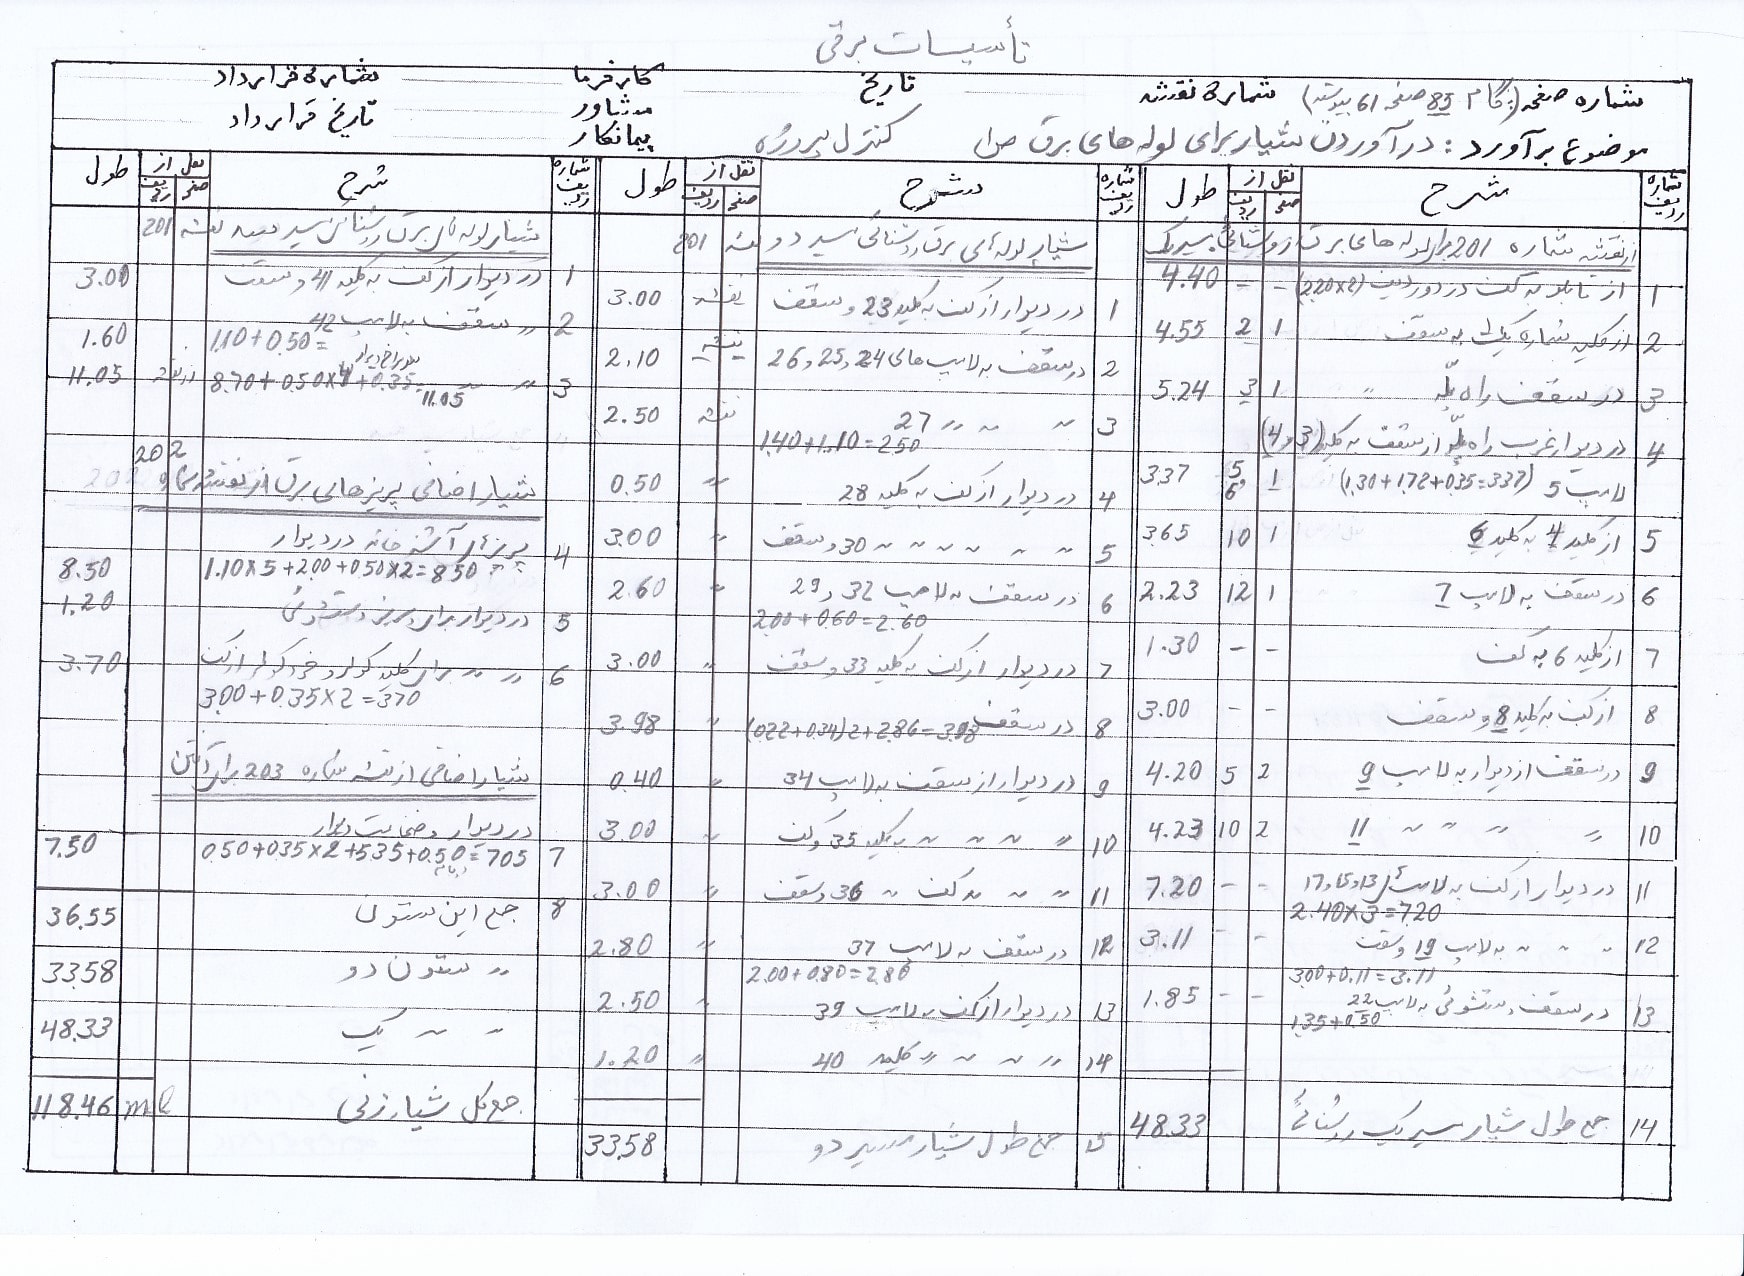 تأسیسات برقی
شماره صفحه (گام 85 صفحه 61 پیوست)
شماره نقشه
تاریخ
کارفرما
شماره قرارداد
مشاور
تاریخ قرارداد
پیمانکار
موضوع برآورد: درآوردن شیار برای لوله‌های برق
کنترل پروژه
شماره ردیف
شرح
نقل از
صفحه ردیف
طول
از نقشه شماره 201 برای لوله های برق روشنائی سیر یک
1 از تابلو به کف در دو ردیف (2.20×2) - - 4.40
2 از کلید شماره یک به سقف 1 2 4.55
3 در سقف راه پله 〃 1 3 5.24
4 در دیوار غرب راه پله از سقف به کلید (3 و 4)
لامپ 5 (1.30+1.72+0.35=3.37) 1 5,6 3.37
5 از کلید 4 به کلید 6 1 10 3.65
6 در سقف به لامپ 7 1 12 2.23
7 از کلید 6 به کف - - 1.30
8 از کف به کلید 8 و سقف - - 3.00
9 در سقف از دیوار به لامپ 9 2 5 4.20
10 〃 〃 〃 〃 11 2 10 4.23
11 در دیوار از کف به لامپهای 13 و 15 و 17 - - 7.20
2.40×3=7.20
12 〃 〃 〃 به لامپ 19 و سقف - - 3.11
3.00+0.11=3.11
13 در سقف دستشوئی به لامپ 22 - - 1.85
1.35+0.50
14 جمع طول شیار سیر یک روشنائی 48.33
شماره ردیف
شرح
نقل از
صفحه ردیف
طول
شیار لوله های برق روشنائی سیر دو نقشه 201
1 در دیوار از کف به کلید 23 و سقف نقشه 3.00
2 در سقف به لامپ های 24 و 25 و 26 نقشه 2.10
3 〃 〃 〃 27 نقشه 2.50
1.40+1.10=2.50
4 در دیوار از کف به کلید 28 〃 0.50
5 〃 〃 〃 〃 〃 30 و سقف 〃 3.00
6 در سقف به لامپ 32 و 29 〃 2.60
2.00+0.60=2.60
7 در دیوار از کف به کلید 33 و سقف 〃 3.00
8 در سقف (0.22+0.34)2+2.86=3.98 〃 3.98
9 در دیوار از سقف به لامپ 34 〃 0.40
10 〃 〃 〃 〃 به کلید 35 و کف 〃 3.00
11 〃 〃 〃 کف 〃 36 و سقف 〃 3.00
12 در سقف به لامپ 37 〃 2.80
2.00+0.80=2.80
13 در دیوار از کف به لامپ 39 〃 2.50
14 〃 〃 〃 〃 کلید 40 〃 1.20
15 جمع طول شیار مسیر دو 33.58
شماره ردیف
شرح
نقل از
صفحه ردیف
طول
شیار لوله های برق روشنائی سیر سه نقشه 201
1 در دیوار از کف به کلید 41 و سقف 3.00
2 〃 سقف به لامپ 42 1.60
1.10+0.50=
سوراخ دیوار
3 〃 〃 8.70+0.50×4+0.35=11.05 از نقشه 11.05
202
شیار اضافی پریزهای برق از نقشه شماره 202
4 پریزهای آشپزخانه در دیوار
1.10×5+2.00+0.50×2=8.50 8.50
5 در دیوار برای پریز دستشوئی 1.20
6 〃 〃 برای کلید کولر و خود کولر از کف 3.70
3.00+0.35×2=3.70
شیار اضافی از نقشه شماره 203 برای آنتن
در دیوار و ضخامت دیوار
7 0.50+0.35×2+5.35+0.50=7.05 7.50
در بام
8 جمع این ستون 36.55
〃 ستون دو 33.58
〃 〃 یک 48.33
جمع کل شیارزنی ml 118.46